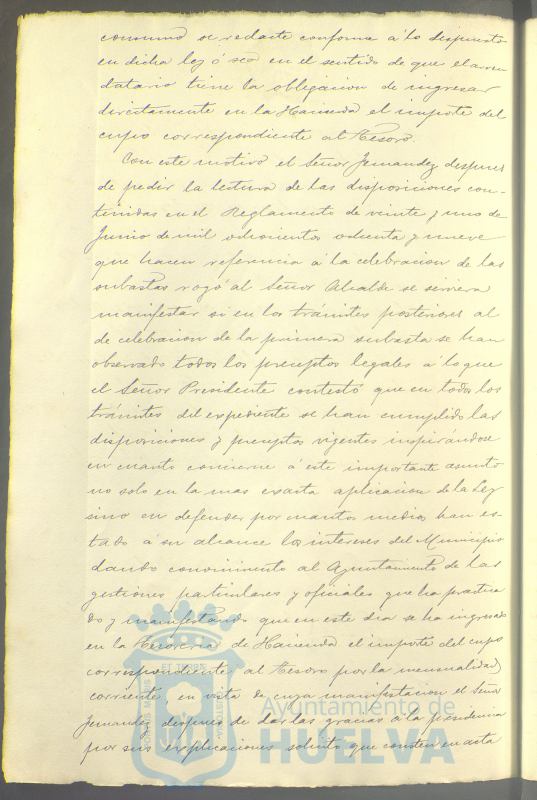 consumos se redacte conforme á lo dispuesto
en dicha ley ó sea en el sentido de que el arren
datario tiene la obligacion de ingresar
directamente en la Hacienda el importe del
cupo correspondiente al Tesoro.
Con este motivo el Señor Jemandez despues
de pedir la lectura de las disposiciones con-
tenidas en el Reglamento de veinte y uno de
Junio de mil ochocientos ochenta y nueve
que hacen referencia á la celebracion de las
subastas rogó al Señor Alcalde se sirviera
manifestar si en los trámites posteriores al
de celebracion de la primera subasta se han
observado todos los preceptos legales á lo que
el Señor Presidente contestó que en todos los
trámites del expediente se han cumplido las
disposiciones y preceptos vigentes inspirándose
en cuanto concierne á este importante asunto
no solo en la mas exacta aplicacion de la Ley
sino en defender por cuantos medios han es-
tado á su alcance los intereses del Municipio
dando conocimiento al Ayuntamiento de las
gestiones particulares y oficiales que ha practica
do y manifestando que en este dia se ha ingresado
en la Tesoreria de Hacienda el importe del cupo
correspondiente al Tesoro por la mensualidad
corriente en vista de cuya manifestacion el Señor
Jemandez despues de dar las gracias á la presidencia
por sus explicaciones solicitó que consten en acta
Ayuntamiento de
HUELVA